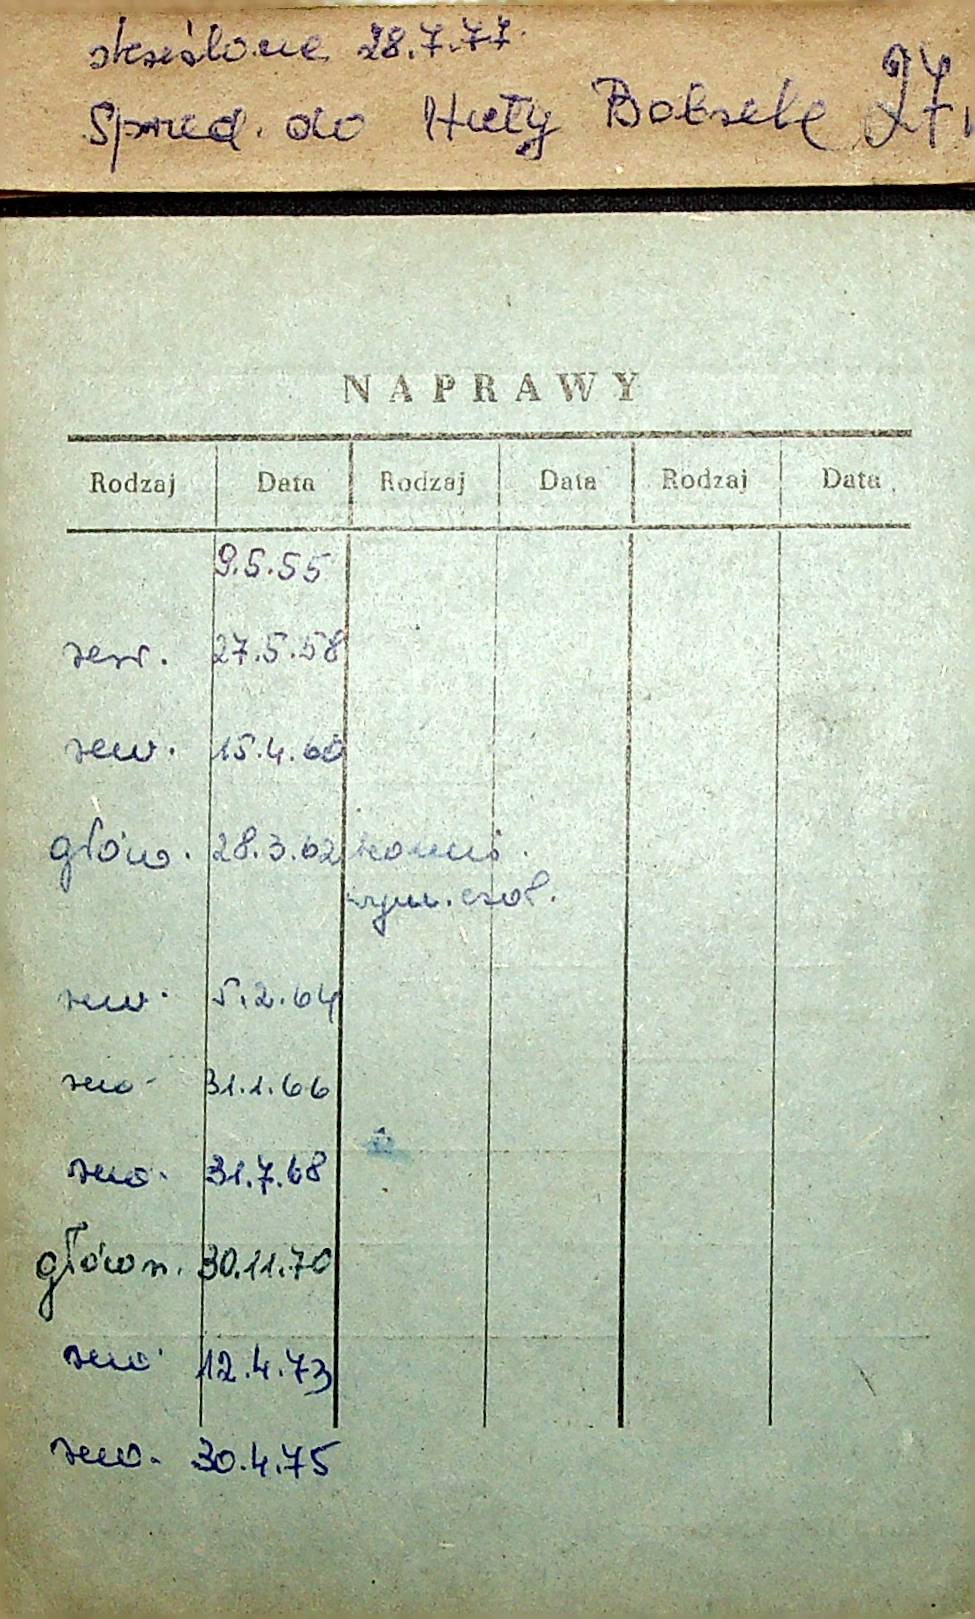 skreślone 28.7.77.
Sprzed. do Huty Bobrek
NAPRAWY
Rodzaj Data Rodzaj Data Rodzaj Data
9.5.55
rew. 27.5.58
rew. 15.4.60
główn. 28.3.62
wym. czoł.
rew. 5.2.64
rew. 31.1.66
rew. 31.7.68
główn. 30.11.70
rew. 12.4.73
rew. 30.4.75